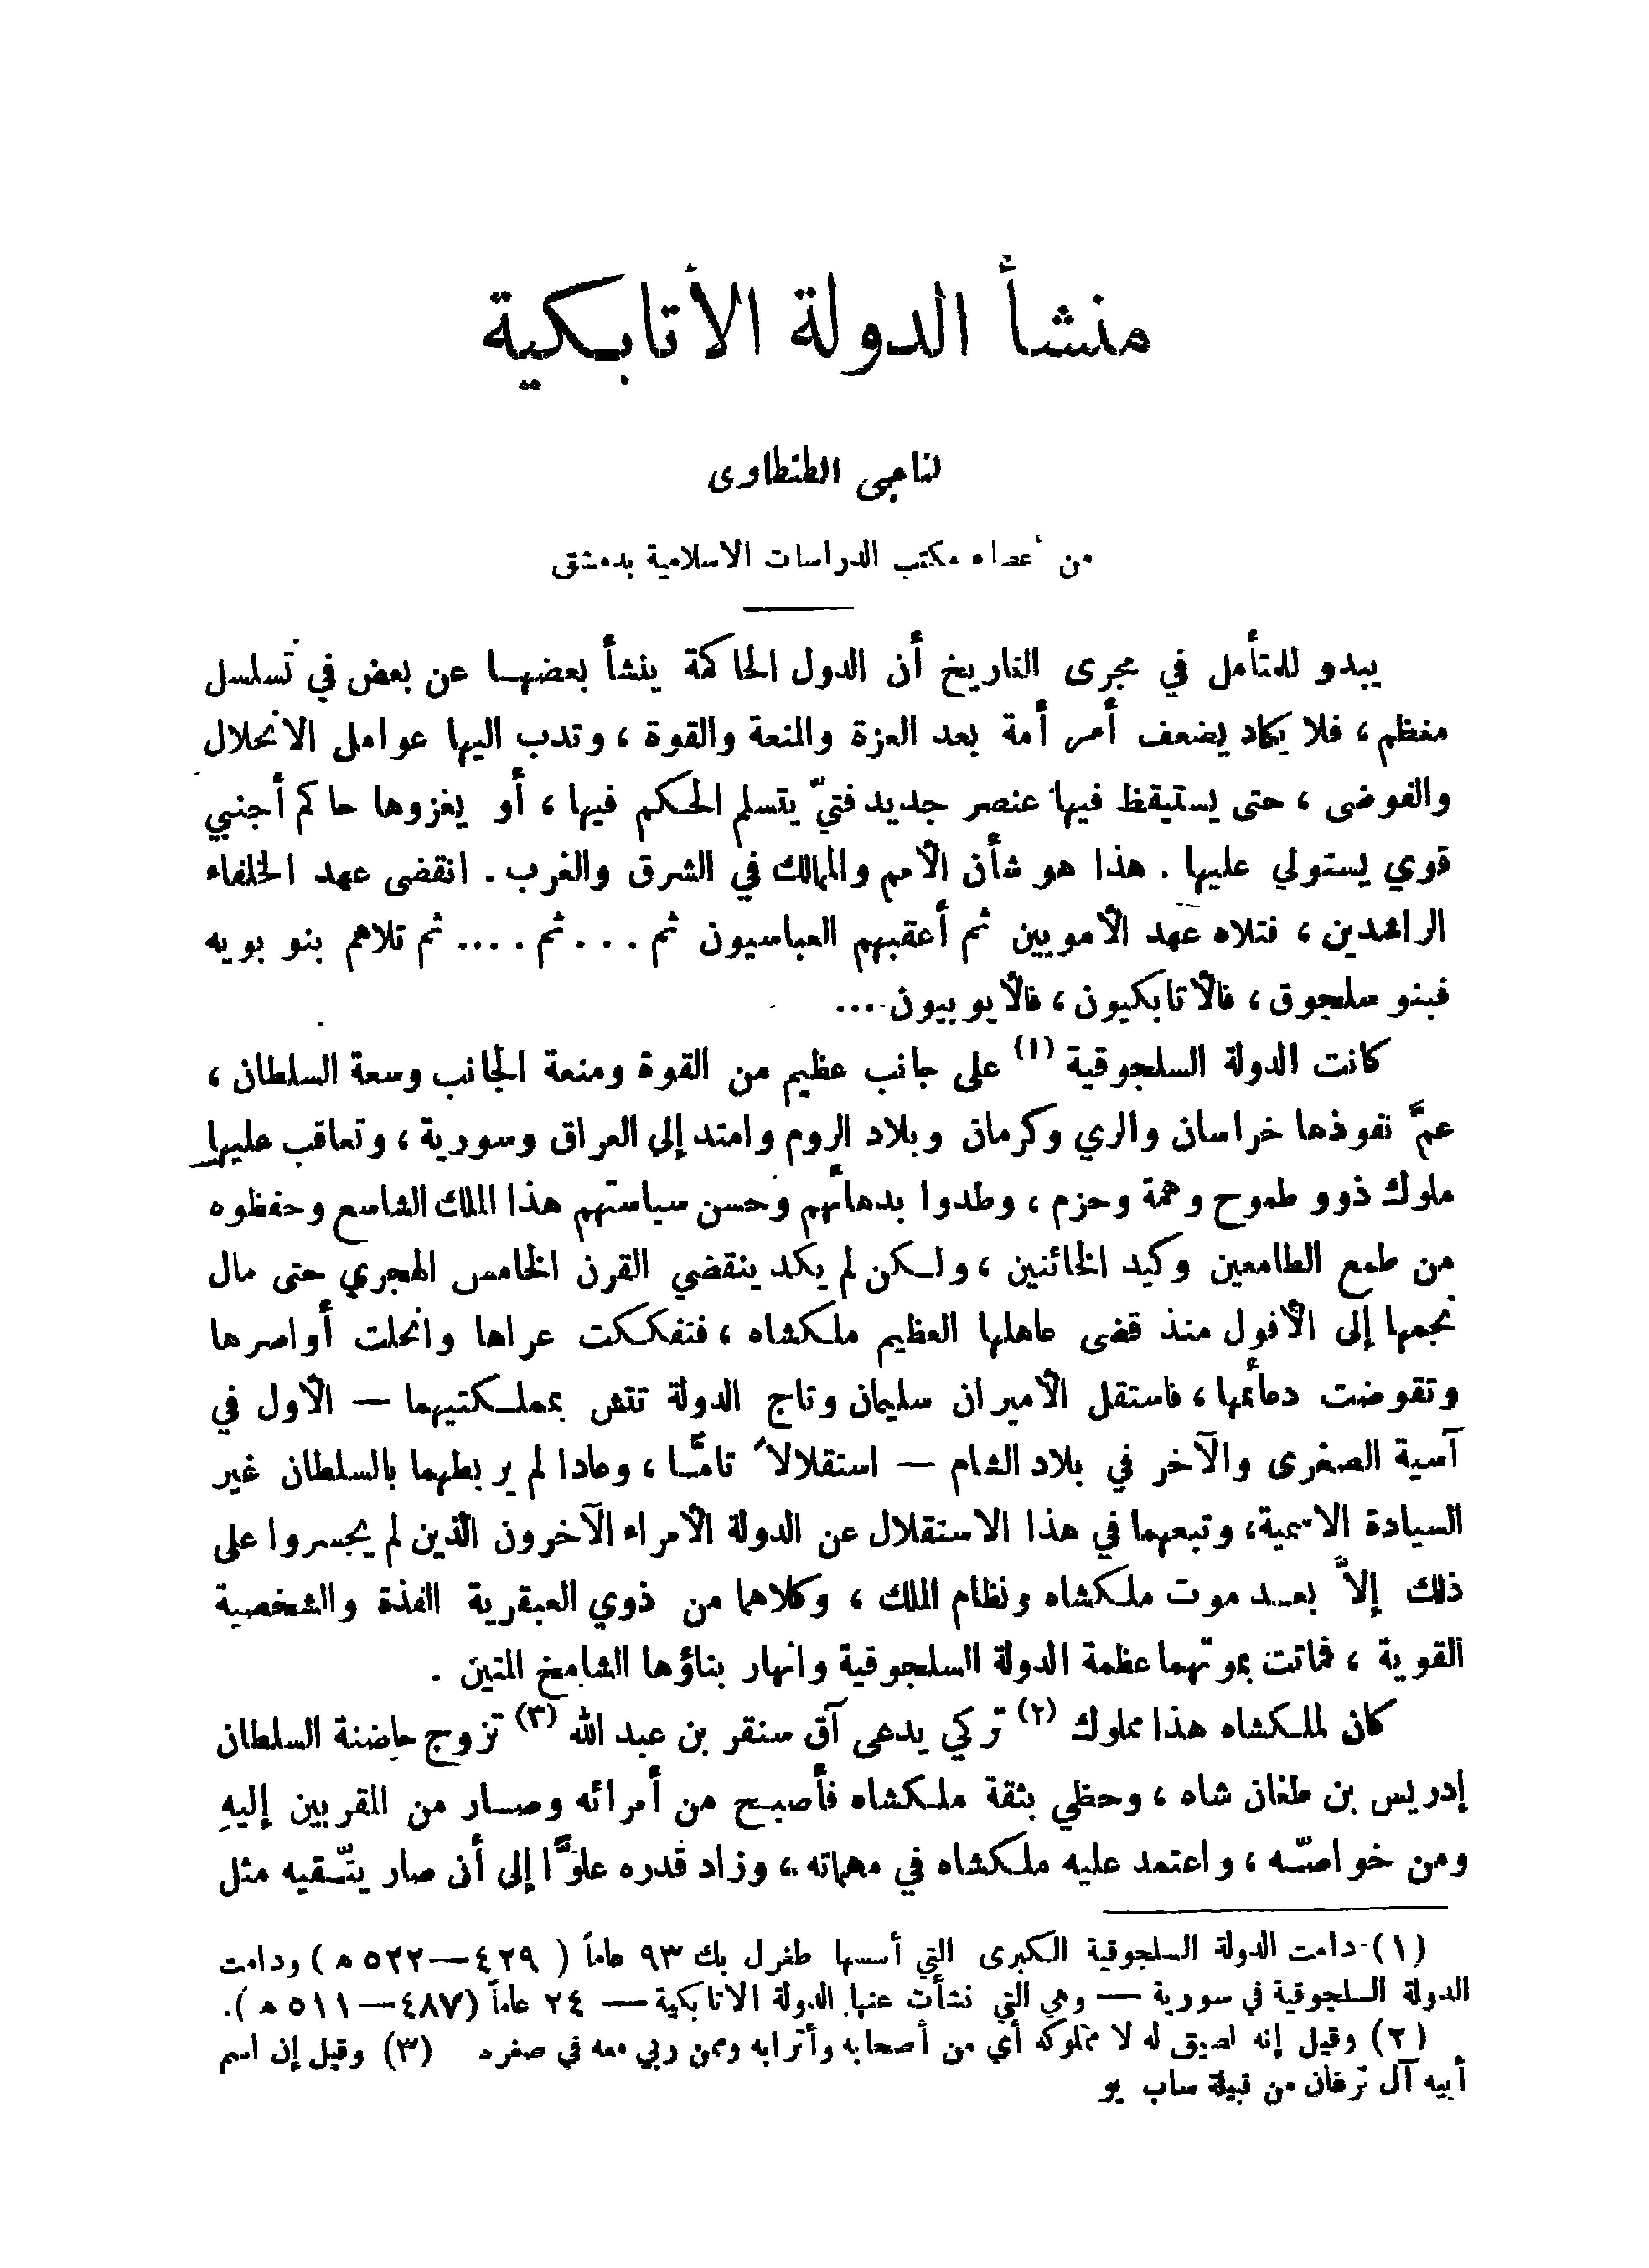 منشأ الدولة الأتابكية
لناجي الطنطاوي
من أعضاء مكتب الدراسات الاسلامية بدمشق
يبدو للمتأمل في مجرى التاريخ أن الدول الحاكمة ينشأ بعضها عن بعض في تسلسل
منظم ، فلا يكاد يضعف أمر أمة بعد العزة والمنعة والقوة ، وتدب اليها عوامل الانحلال
والفوضى ، حتى يستيقظ فيها عنصر جديد فتيّ يتسلم الحكم فيها ، أو يغزوها حاكم أجنبي
قوي يستولي عليها . هذا هو شأن الأمم والممالك في الشرق والغرب . انقضى عهد الخلفاء
الراشدين ، فتلاه عهد الأمويين ثم أعقبهم العباسيون ثم . . . ثم . . . . ثم تلاهم بنو بويه
فبنو سلجوق ، فالأتابكيون ، فالأيوبيون ....
كانت الدولة السلجوقية (١) على جانب عظيم من القوة ومنعة الجانب وسعة السلطان ،
عمَّ نفوذها خراسان والري وكرمان وبلاد الروم وامتد إلى العراق وسورية ، وتعاقب عليها
ملوك ذوو طموح وهمة وحزم ، وطدوا بدهائهم وحسن سياستهم هذا الملك الشاسع وحفظوه
من طمع الطامعين وكيد الخائنين ، ولكن لم يكد ينقضي القرن الخامس الهجري حتى مال
نجمها إلى الأفول منذ قضى عاهلها العظيم ملكشاه ، فتفككت عراها وانحلت أواصرها
وتقوضت دعائمها ، فاستقل الأميران سليمان وتاج الدولة تتش بمملكتيهما — الأول في
آسية الصغرى والآخر في بلاد الشام — استقلالاً تامًّا ، وعادا لم يربطهما بالسلطان غير
السيادة الاسمية ، وتبعهما في هذا الاستقلال عن الدولة الأمراء الآخرون الذين لم يجسروا على
ذلك إلاَّ بعد موت ملكشاه ونظام الملك ، وكلاهما من ذوي العبقرية الفذة والشخصية
القوية ، فماتت بموتهما عظمة الدولة السلجوقية وانهار بناؤها الشامخ المتين .
كان لملكشاه هذا مملوك (٢) تركي يدعى آق سنقر بن عبد الله (٣) تزوج حاضنة السلطان
إدريس بن طغان شاه ، وحظي بثقة ملكشاه فأصبح من أمرائه وصار من المقربين إليهِ
ومن خواصّه ، واعتمد عليه ملكشاه في مهماته ، وزاد قدره علوًّا إلى أن صار يتّقيه مثل
(١) دامت الدولة السلجوقية الكبرى التي أسسها طغرل بك ٩٣ عاماً ( ٤٢٩—٥٢٢ ه ) ودامت
الدولة السلجوقية في سورية — وهي التي نشأت عنها الدولة الاتابكية — ٢٤ عاماً (٤٨٧—٥١١ ه ).
(٢) وقيل إنه لصيق له لا مملوكه أي من أصحابه وأترابه وممن ربي معه في صغره (٣) وقيل إن اسم
أبيه آل ترغان من قبيلة ساب يو